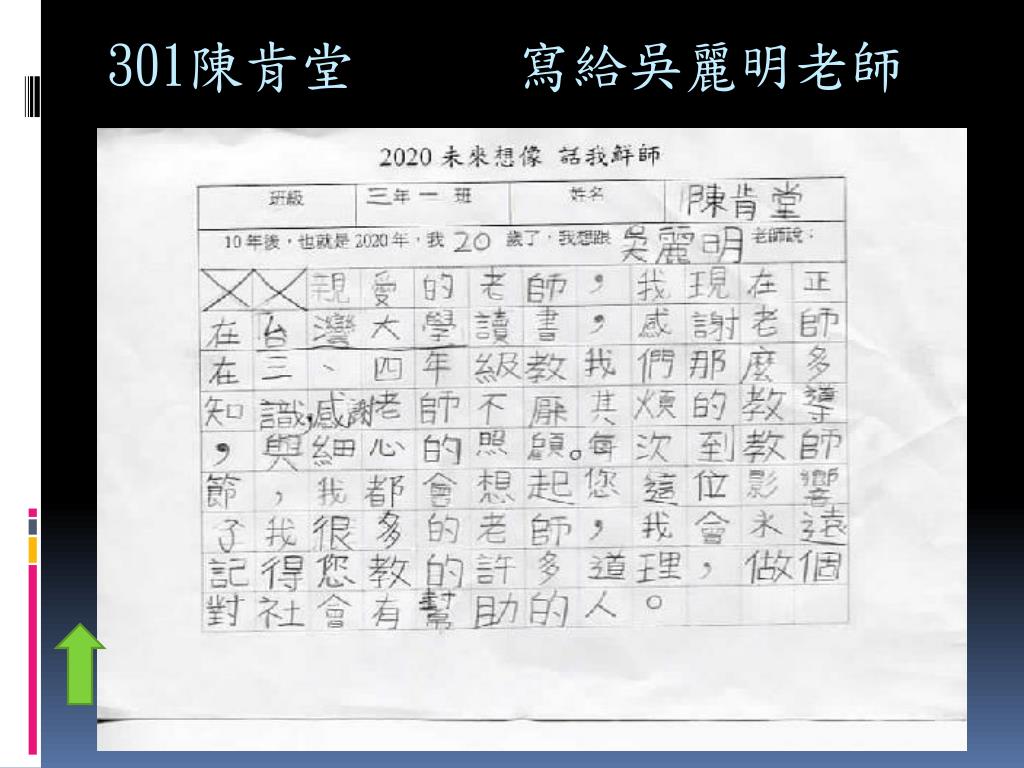 301陳肯堂 寫給吳麗明老師
2020 未來想像 話我鮮師
班級 三年 一 班 姓名 陳肯堂
10 年後，也就是 2020 年，我 20 歲了，我想跟 吳麗明 老師說：
親愛的老師，我現在正
在台灣大學讀書，感謝老師
在三、四年級教我們那麼多
知識，感謝老師不厭其煩的教導
，與細心的照顧。每次到教師
節，我都會想起您這位影響
了我很多的老師，我會永遠
記得您教的許多道理，做個
對社會有幫助的人。